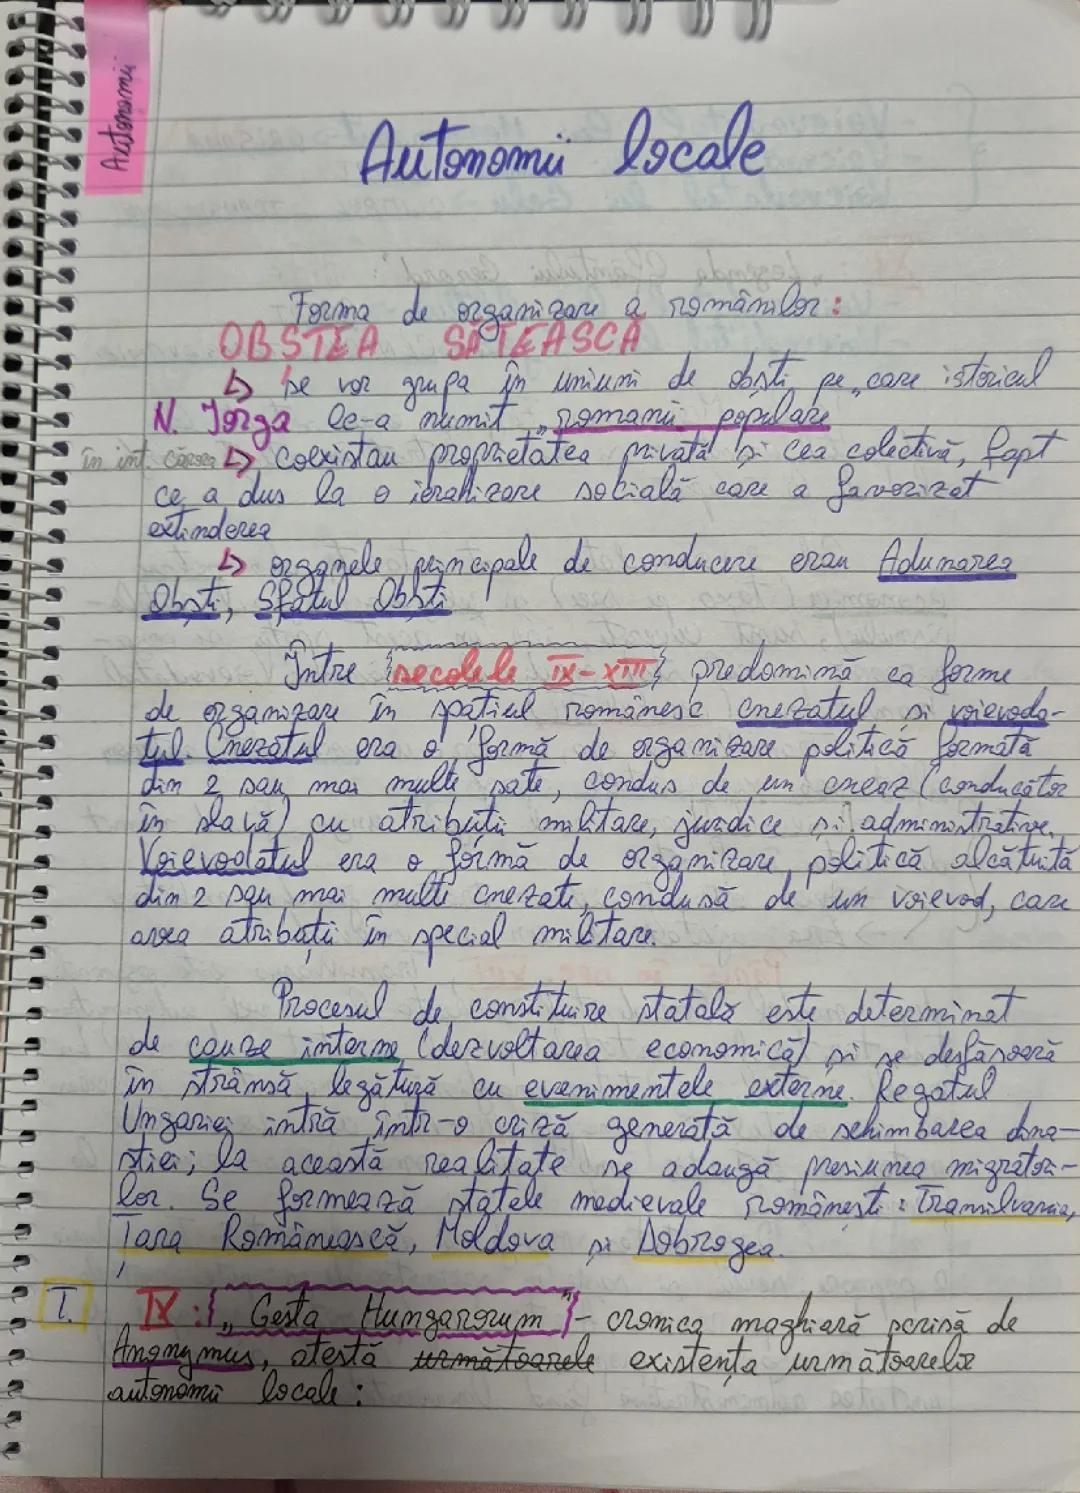 Autonomii
Autonomii locale
Forma de organizare a românilor:
OBSTEA SĂTEASCĂ
↳ se vor grupa în uniuni de obști pe care istoricul
N. Iorga le-a numit „romanii populare
în int. căreia ↳ coexistau proprietatea privată și cea colectivă, fapt
ce a dus la o ierahizare socială care a favorizat
extinderea
↳ organele principale de conducere erau Adunarea
Obști, Sfatul Obști
Între secolele IX-XIII predomină ca forme
de organizare în spațiul românesc cnezatul și voievoda-
tul. Cnezatul era o formă de organizare politică formată
din 2 sau mai multe sate, condus de un cneaz (conducător
în slavă) cu atribuții militare, juridice și administrative.
Voievodatul era o formă de organizare politică alcătuită
din 2 sau mai multe cnezate, condusă de un voievod, care
avea atribuții în special militare.
Procesul de constituire statală este determinat
de cauze interne (dezvoltarea economică) și se desfășoară
în strânsă legătură cu evenimentele externe. Regatul
Ungariei intră într-o criză generată de schimbarea dina-
stiei; la această realitate se adaugă presiunea migratori-
lor. Se formează statele medievale românești: Transilvania,
Țara Românească, Moldova și Dobrogea.
I. IX: „Gesta Hungarorum" - cronica maghiară scrisă de
Anonymus, atestă următoarele existența următoarelor
autonomii locale: